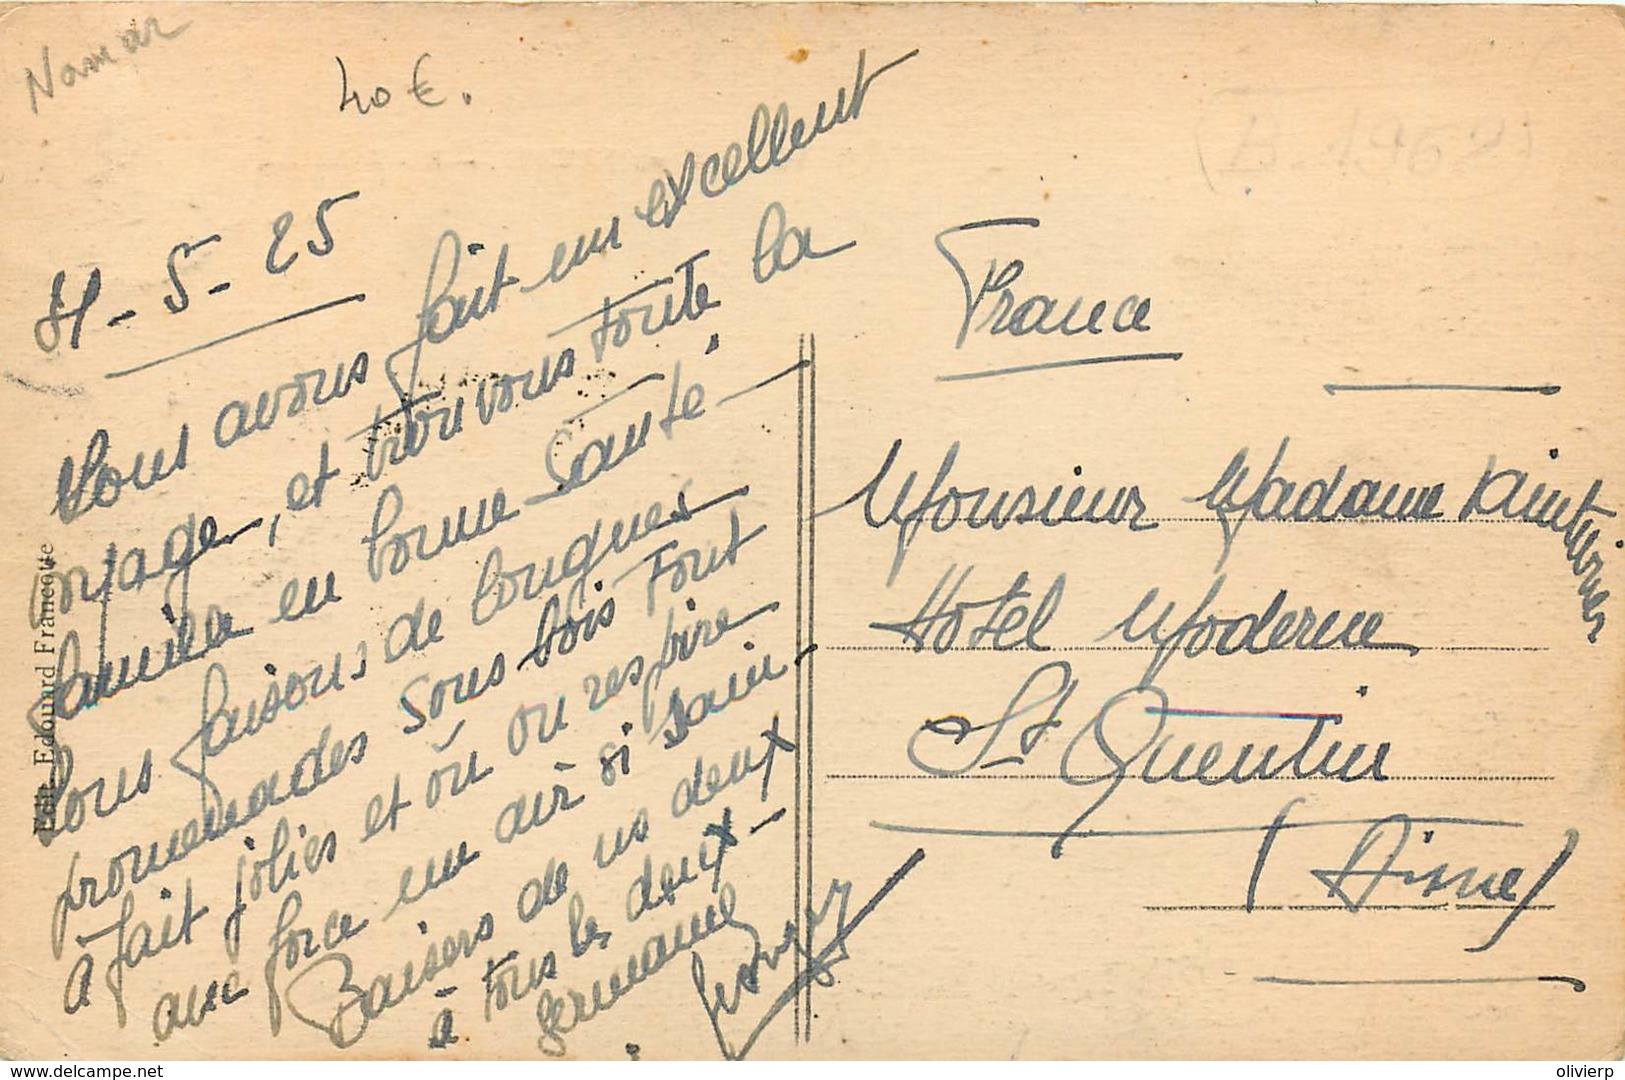 Namur
40 €.
31-5-25
Nous avons fait un excellent
voyage, et trouvons toute la
famille en bonne santé.
Nous faisons de longues
promenades sous bois tout
à fait jolies et où on respire
avec force un air si sain.
Baisers de ns deux
à tous les deux.
Germaine
France
Monsieur Madame
Hotel Moderne
St Quentin
(Aisne)
Edit. Edouard Francotte
olivierp